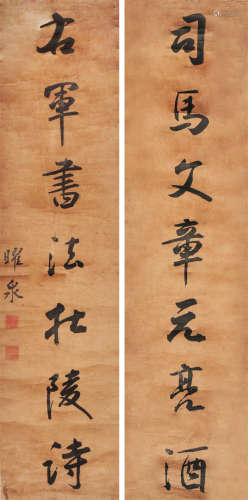 司馬文章元亮酒
右軍書法杜陵詩
曜泉